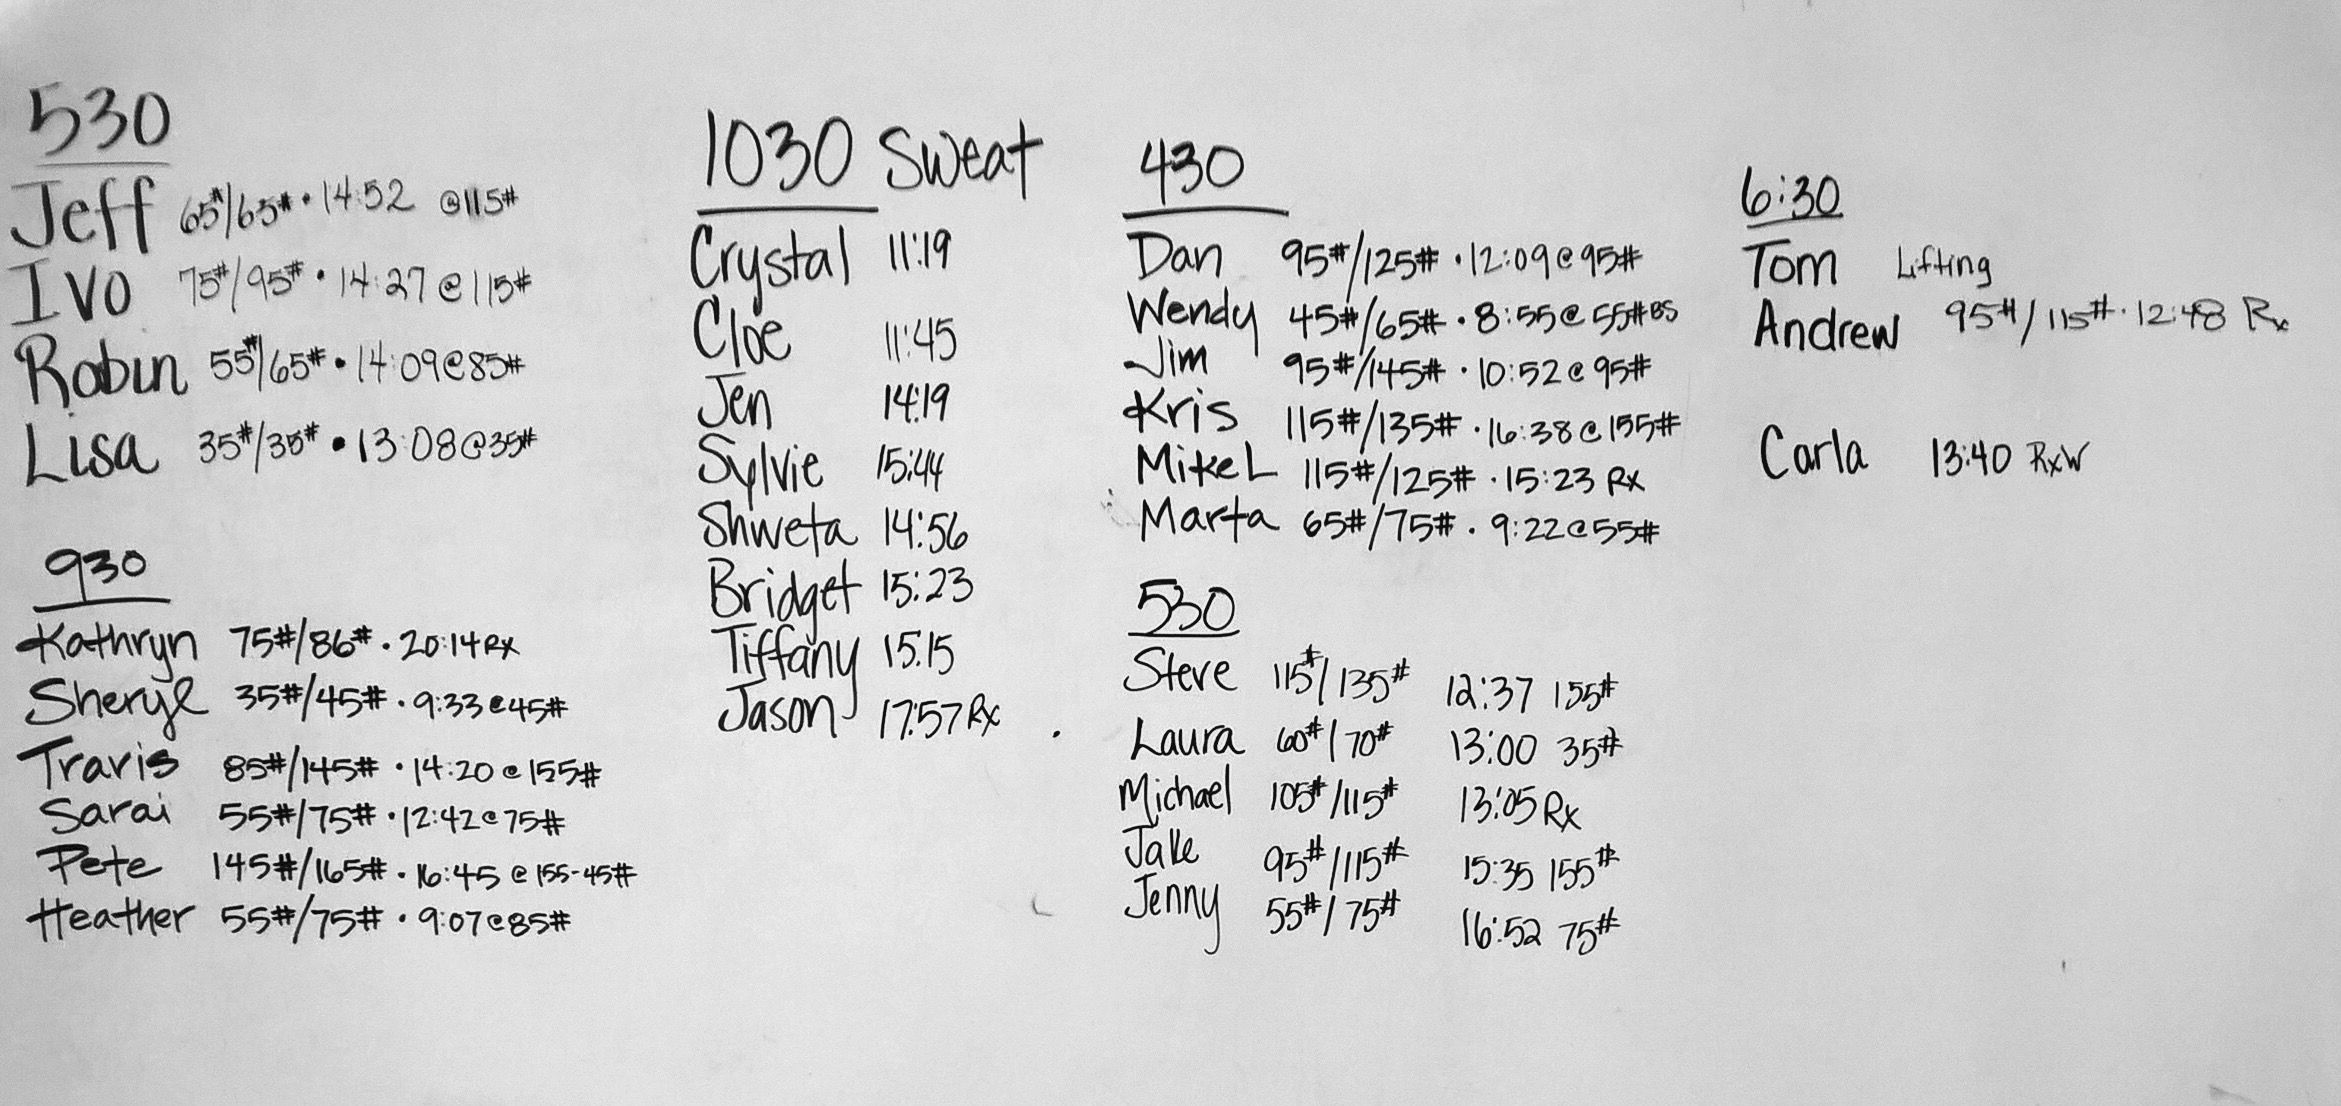 530
Jeff 65#/65# • 14:52 @115#
Ivo 75#/95# • 14:27 @ 115#
Robin 55#/65# • 14:09@85#
Lisa 35#/35# • 13:08@35#
930
Kathryn 75#/86# • 20:14 Rx
Sheryl 35#/45# • 9:33@45#
Travis 85#/145# • 14:20@155#
Sarai 55#/75# • 12:42@75#
Pete 145#/165# • 16:45 @ 155-45#
Heather 55#/75# • 9:07@85#
1030 Sweat
Crystal 11:19
Cloe 11:45
Jen 14:19
Sylvie 15:44
Shweta 14:56
Bridget 15:23
Tiffany 15:15
Jason 17:57 Rx
430
Dan 95#/125# • 12:09@95#
Wendy 45#/65# • 8:55@55# BS
Jim 95#/145# • 10:52@95#
Kris 115#/135# • 16:38@155#
Mike L 115#/125# • 15:23 Rx
Marta 65#/75# • 9:22@55#
530
Steve 115#/135# 12:37 155#
Laura 60#/70# 13:00 35#
Michael 105#/115# 13:05 Rx
Jake 95#/115# 15:35 155#
Jenny 55#/75# 16:52 75#
6:30
Tom Lifting
Andrew 95#/115# • 12:48 Rx
Carla 13:40 RxW